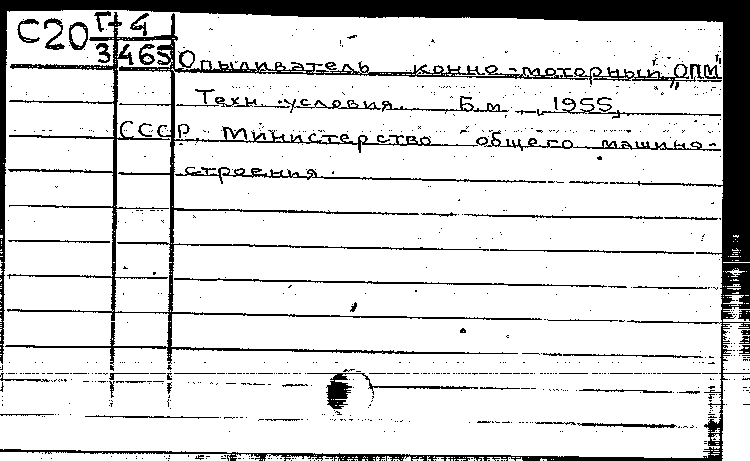 С20 Г-4
3 465 Опыливатель конно-моторный „ОПМ"
Техн. условия. Б.м., 1955,
СССР. Министерство общего машино-
строения.